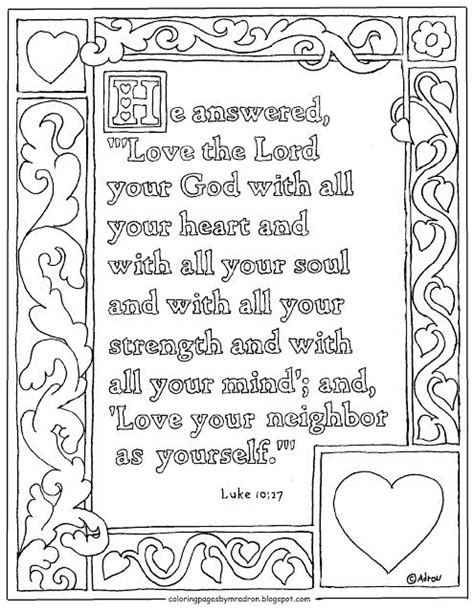 He answered,
"'Love the Lord
your God with all
your heart and
with all your soul
and with all your
strength and with
all your mind'; and,
'Love your neighbor
as yourself.'"
Luke 10:27
© Adron
coloringpagesbymradron.blogspot.com